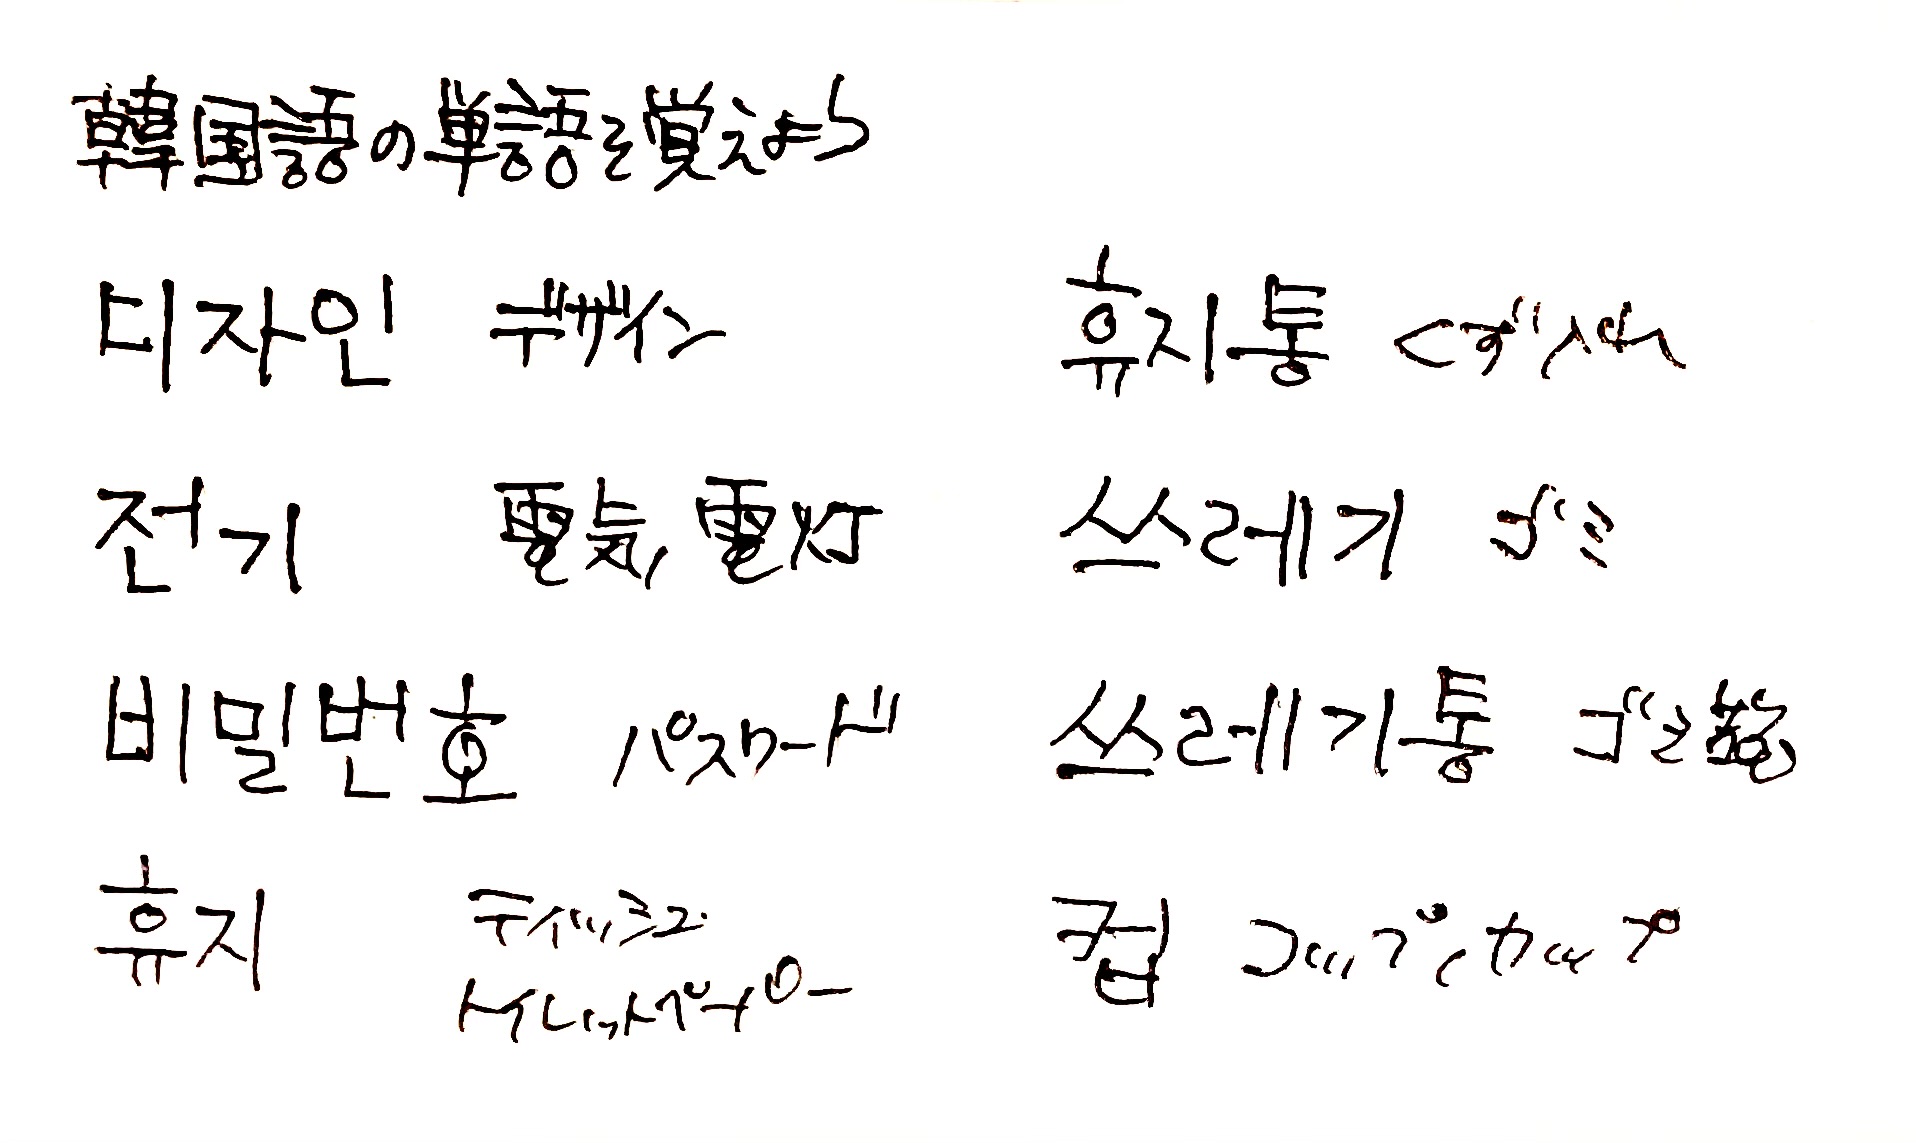 韓国語の単語を覚えよう
디자인 デザイン
전기 電気, 電灯
비밀번호 パスワード
휴지 ティッシュ
トイレットペーパー
휴지통 くずいれ
쓰레기 ゴミ
쓰레기통 ゴミ箱
컵 コップ, カップ